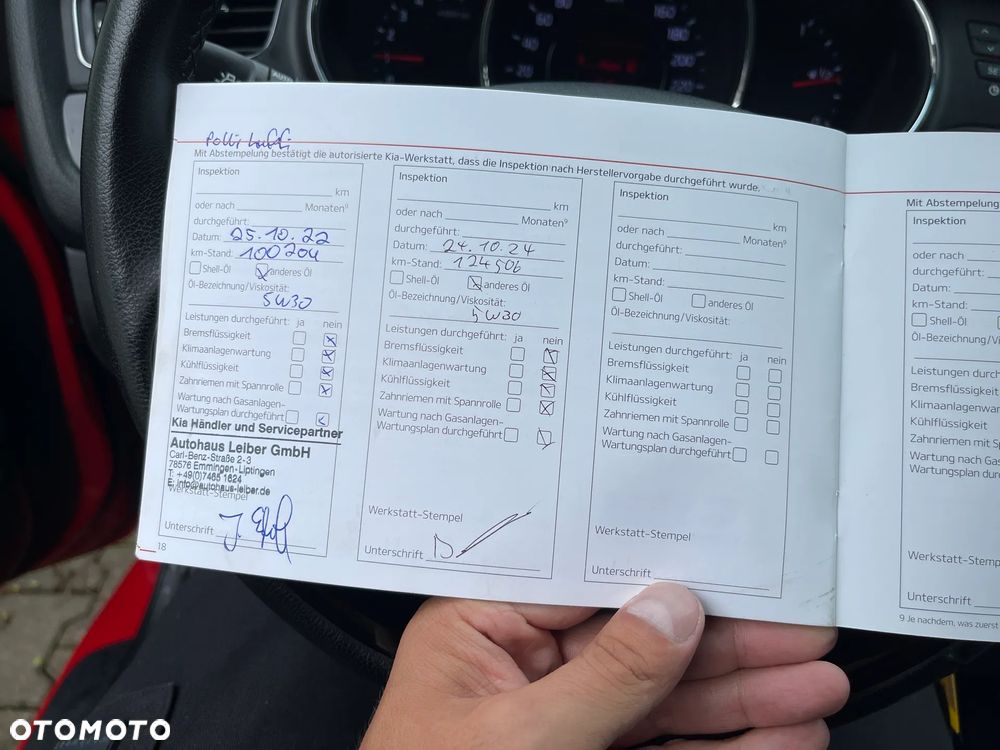 Mit Abstempelung bestätigt die autorisierte Kia-Werkstatt, dass die Inspektion nach Herstellervorgabe durchgeführt wurde.
Inspektion
km
oder nach Monaten⁹
durchgeführt:
Datum: 25.10.22
km-Stand: 100204
Shell-Öl anderes Öl
Öl-Bezeichnung/Viskosität:
5W30
Leistungen durchgeführt: ja nein
Bremsflüssigkeit
Klimaanlagenwartung
Kühlflüssigkeit
Zahnriemen mit Spannrolle
Wartung nach Gasanlagen-
Wartungsplan durchgeführt
Kia Händler und Servicepartner
Autohaus Leiber GmbH
Carl-Benz-Straße 2-3
78576 Emmingen-Liptingen
T: +49(0)7465 1624
E: info@autohaus-leiber.de
Werkstatt-Stempel
Unterschrift
18
Inspektion
km
oder nach Monaten⁹
durchgeführt:
Datum: 24.10.24
km-Stand: 124506
Shell-Öl anderes Öl
Öl-Bezeichnung/Viskosität:
5W30
Leistungen durchgeführt: ja nein
Bremsflüssigkeit
Klimaanlagenwartung
Kühlflüssigkeit
Zahnriemen mit Spannrolle
Wartung nach Gasanlagen-
Wartungsplan durchgeführt
Werkstatt-Stempel
Unterschrift
Inspektion
km
oder nach Monaten⁹
durchgeführt:
Datum:
km-Stand:
Shell-Öl anderes Öl
Öl-Bezeichnung/Viskosität:
Leistungen durchgeführt: ja nein
Bremsflüssigkeit
Klimaanlagenwartung
Kühlflüssigkeit
Zahnriemen mit Spannrolle
Wartung nach Gasanlagen-
Wartungsplan durchgeführt
Werkstatt-Stempel
Unterschrift
Mit Abstempelung
Inspektion
oder nach
durchgeführt:
Datum:
km-Stand:
Shell-Öl
Öl-Bezeichnung/Vi
Leistungen durch
Bremsflüssigkeit
Klimaanlagenwar
Kühlflüssigkeit
Zahnriemen mit S
Wartung nach Gas
Wartungsplan durc
Werkstatt-Stemp
Unterschrift
9 Je nachdem, was zuerst
OTOMOTO